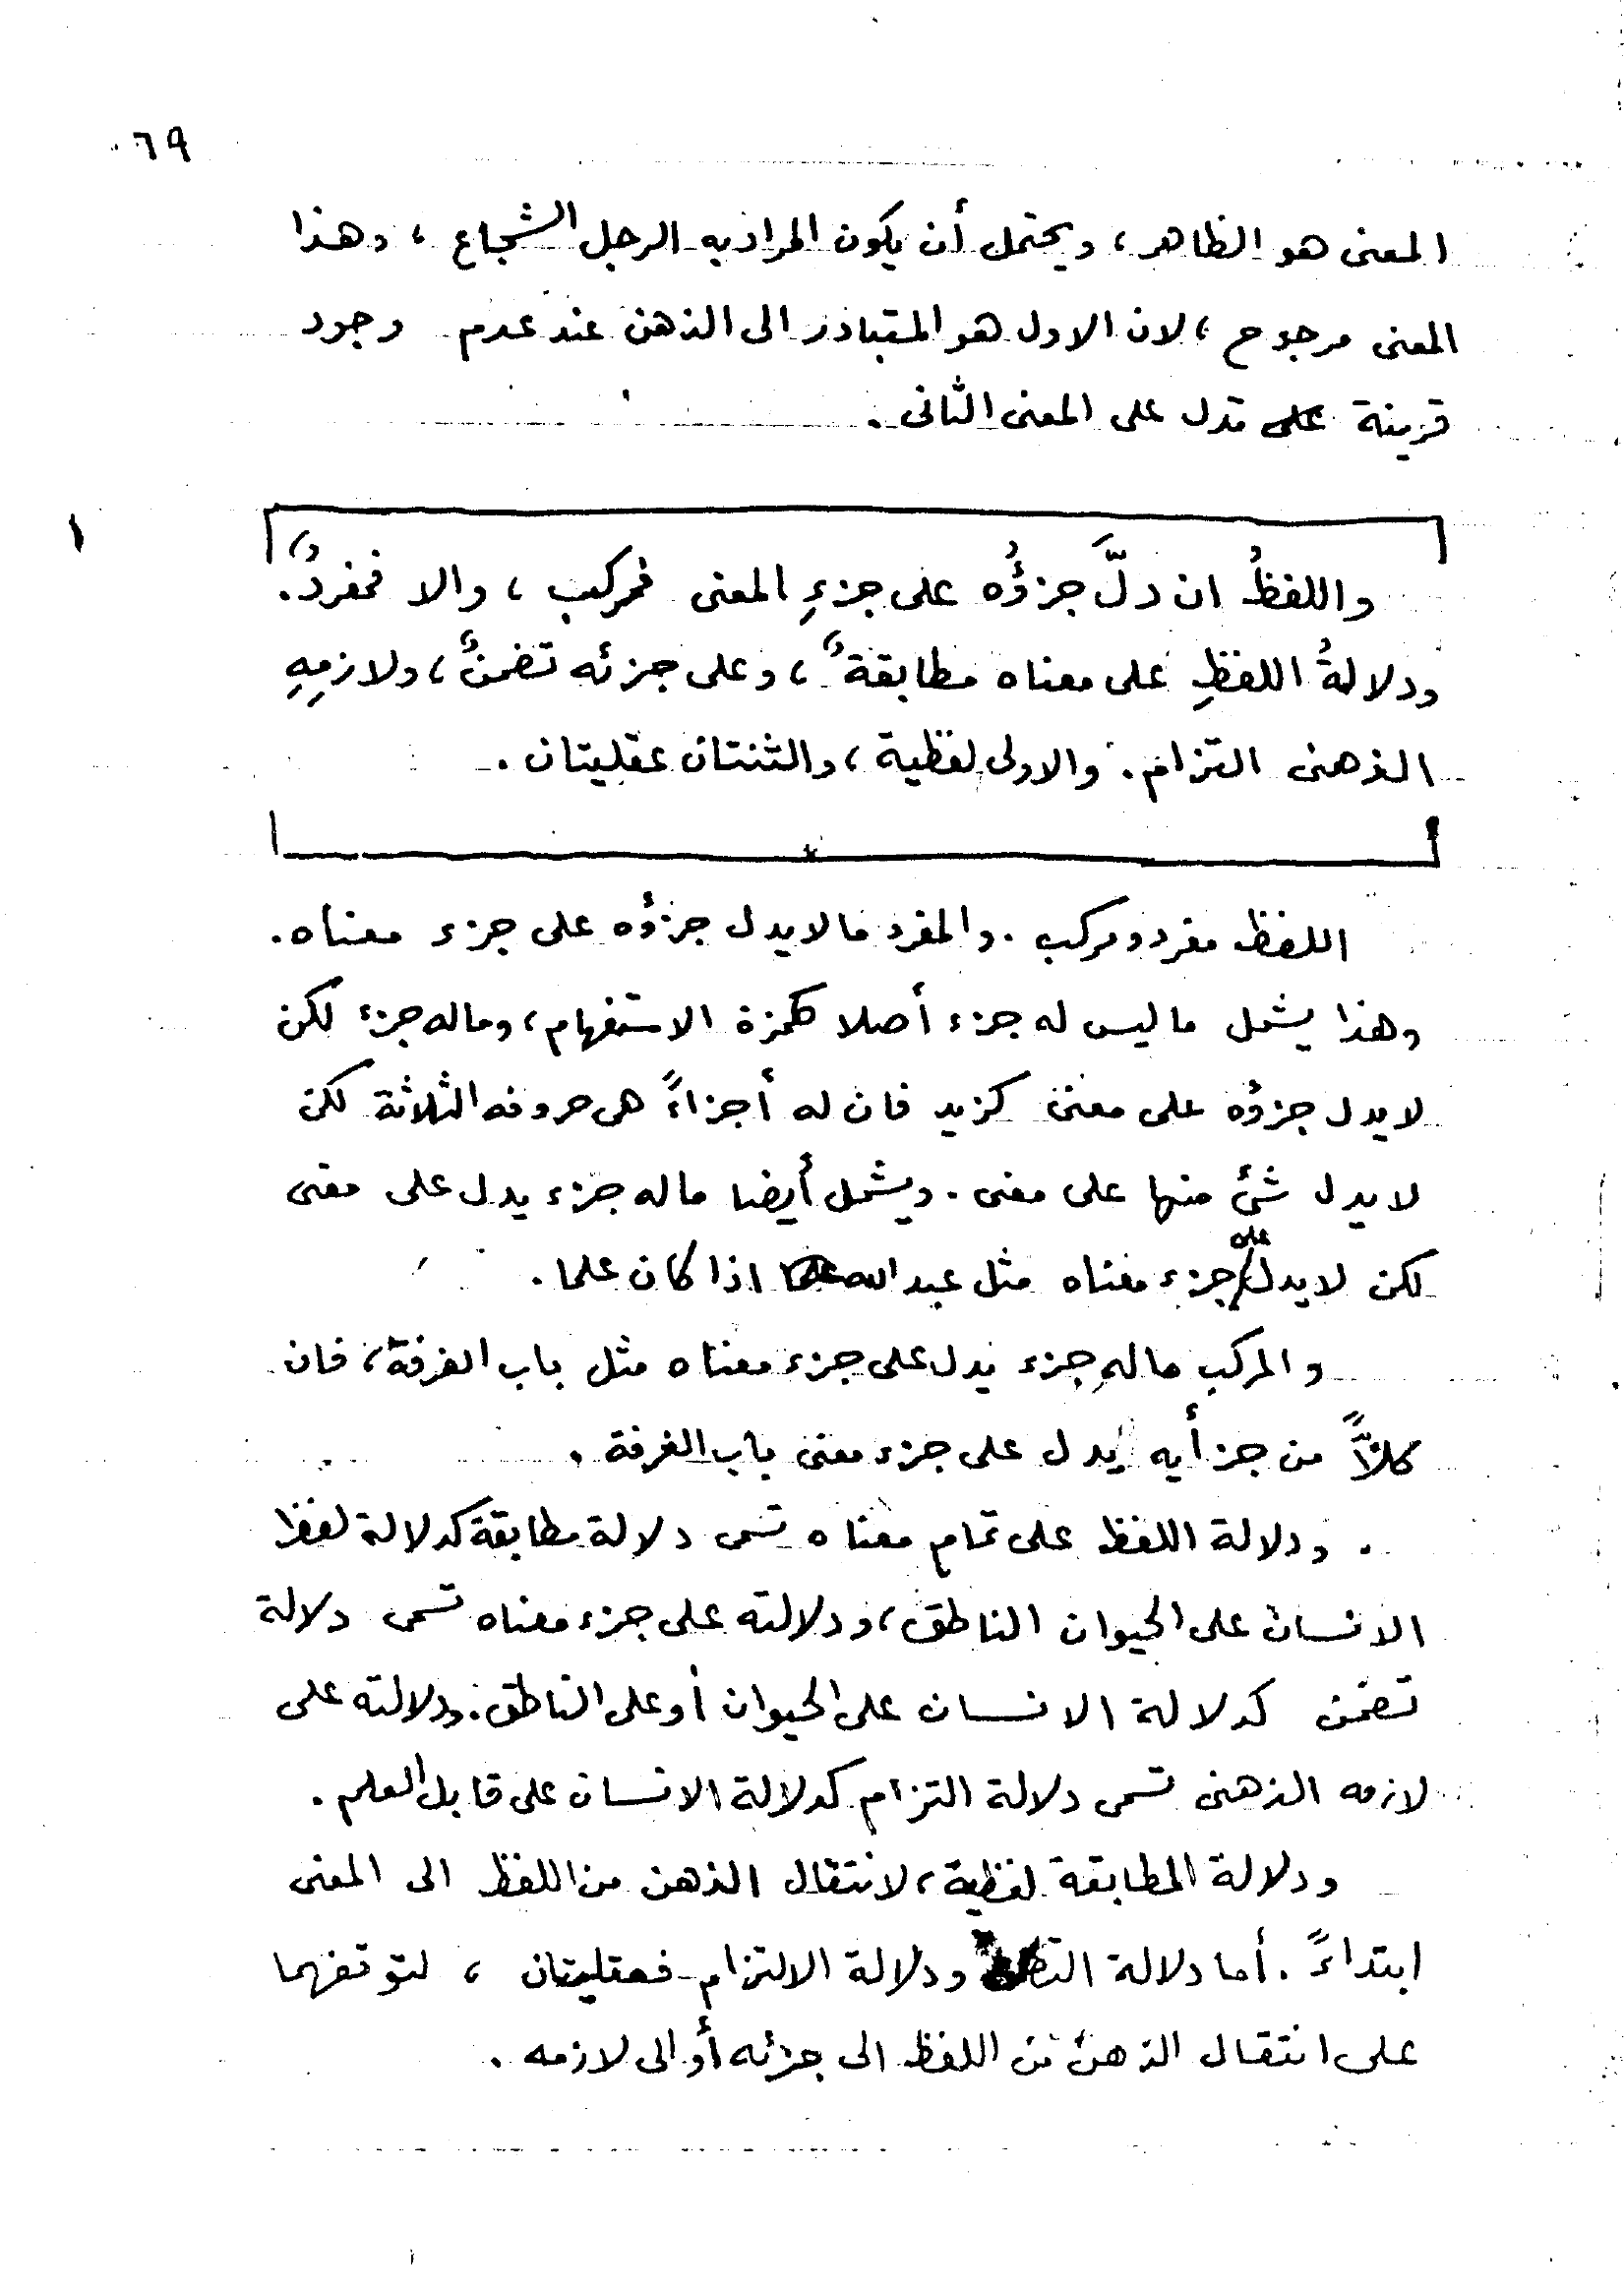 ٦٩
المعنى هو الظاهر، ويحتمل أن يكون المراد به الرجل الشجاع، وهذا
المعنى مرجوح، لان الاول هو المتبادر الى الذهن عند عدم وجود
قرينة تدل على المعنى الثانى.
١
واللفظُ ان دلَّ جزؤُه على جزءِ المعنى فمركبٌ، والا فمفردٌ.
ودلالةُ اللفظِ على معناه مطابقةٌ، وعلى جزئه تضمنٌ، ولازمِهِ
الذهنى التزام. والاولى لفظية، والثنتان عقليتان.
اللفظ مفرد ومركب. والمفرد ما لا يدل جزؤه على جزء معناه.
وهذا يشمل ما ليس له جزء أصلا كهمزة الاستفهام، وماله جزء لكن
لا يدل جزؤه على معنى كزيد فان له أجزاءً هى حروفه الثلاثة لكن
لا يدل شئ منها على معنى. ويشمل أيضا ماله جزء يدل على معنى
لكن لا يدل على جزء معناه مثل عبد الله اذا كان علما.
والمركب ماله جزء يدل على جزء معناه مثل باب الغرفة، فان
كلاًّ من جزأيه يدل على جزء معنى باب الغرفة.
ودلالة اللفظ على تمام معناه تسمى دلالة مطابقة كدلالة لفظ
الانسان على الحيوان الناطق، ودلالته على جزء معناه تسمى دلالة
تضمن كدلالة الانسان على الحيوان أو على الناطق. ودلالته على
لازمه الذهنى تسمى دلالة التزام كدلالة الانسان على قابل العلم.
ودلالة المطابقة لفظية، لانتقال الذهن من اللفظ الى المعنى
ابتداءً. أما دلالة ودلالة الالتزام فعقليتان، لتوقفهما
على انتقال الذهن من اللفظ الى جزئه أو الى لازمه.